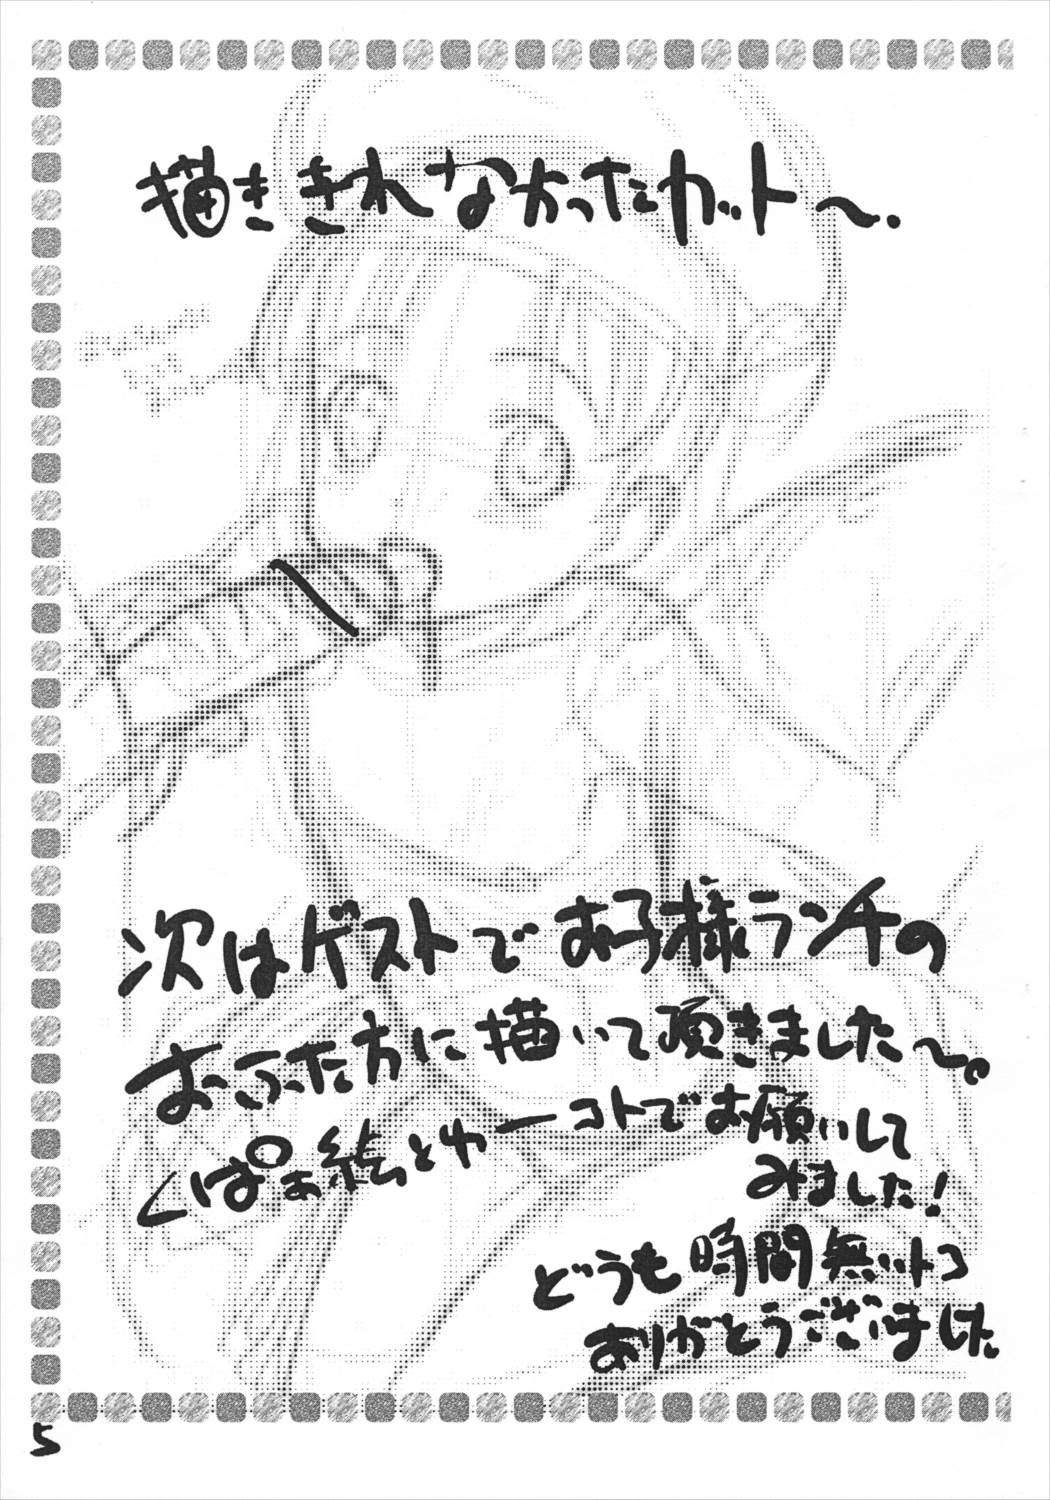 描ききれなかったカット～.
次はゲストでお子様ランチの
おふた方に描いて頂きました～。
くぱぁ絵とゆーコトでお願いして
みました!
どうも時間無いトコ
ありがとうございました。
5